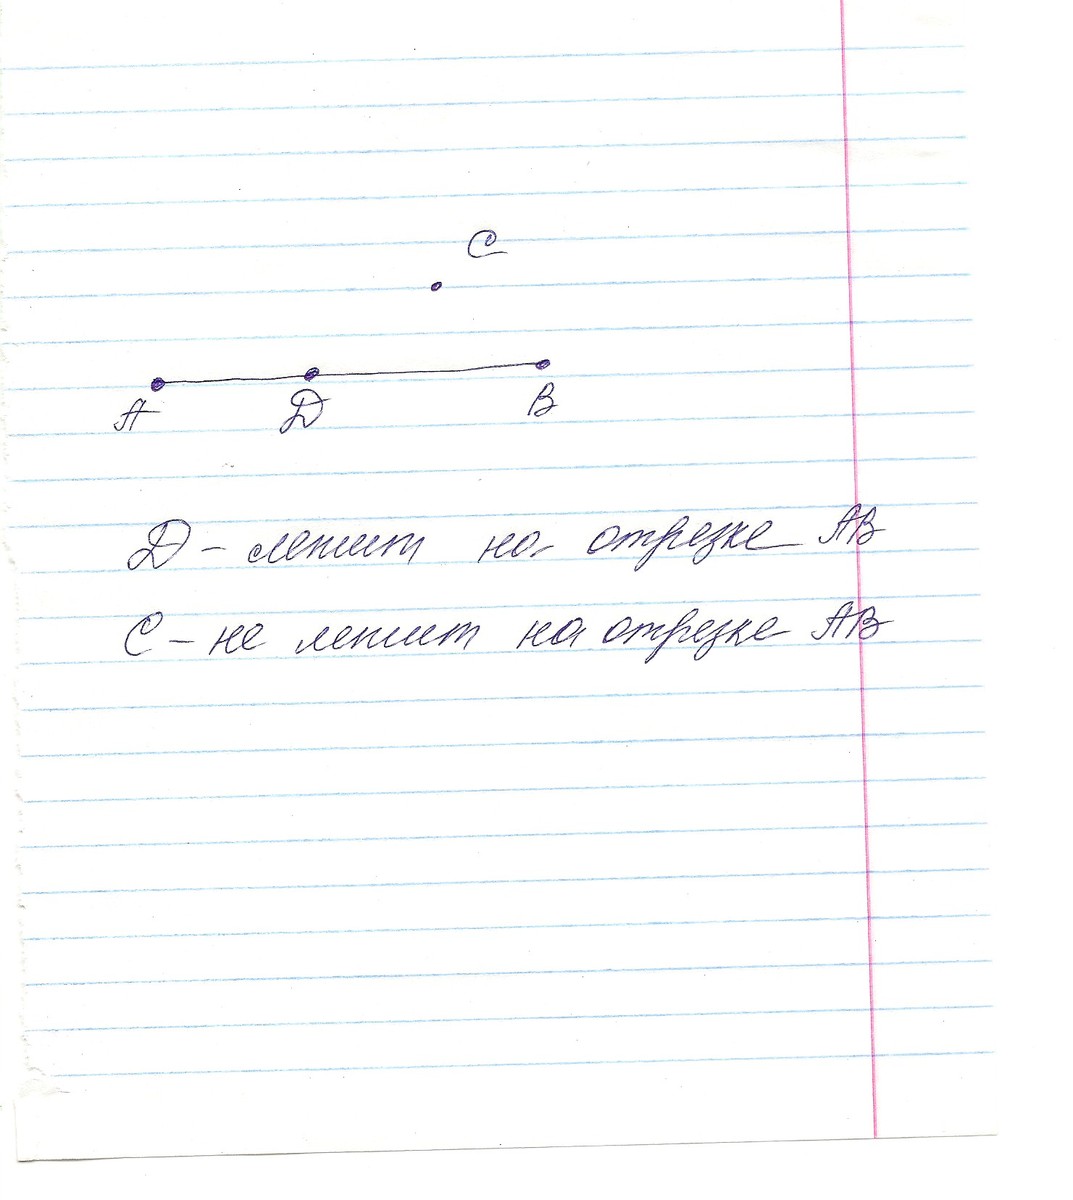 C
A D B
D - лежит на отрезке AB
C - не лежит на отрезке AB